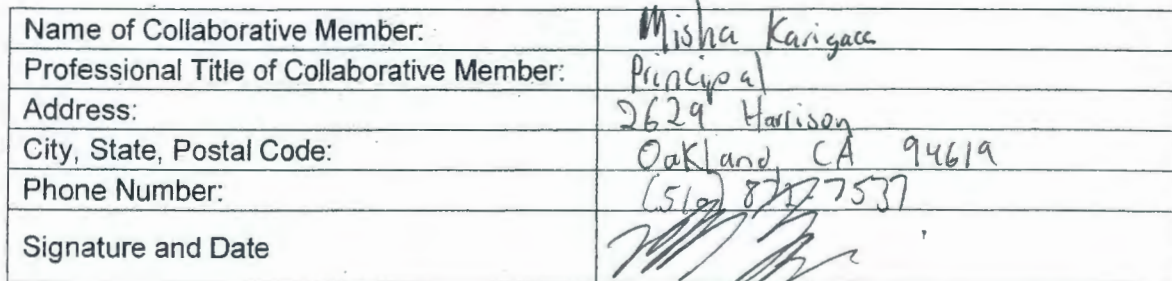 Name of Collaborative Member: Misha Karigaca
Professional Title of Collaborative Member: Principal
Address: 2629 Harrison
City, State, Postal Code: Oakland, CA 94619
Phone Number: (510)
Signature and Date